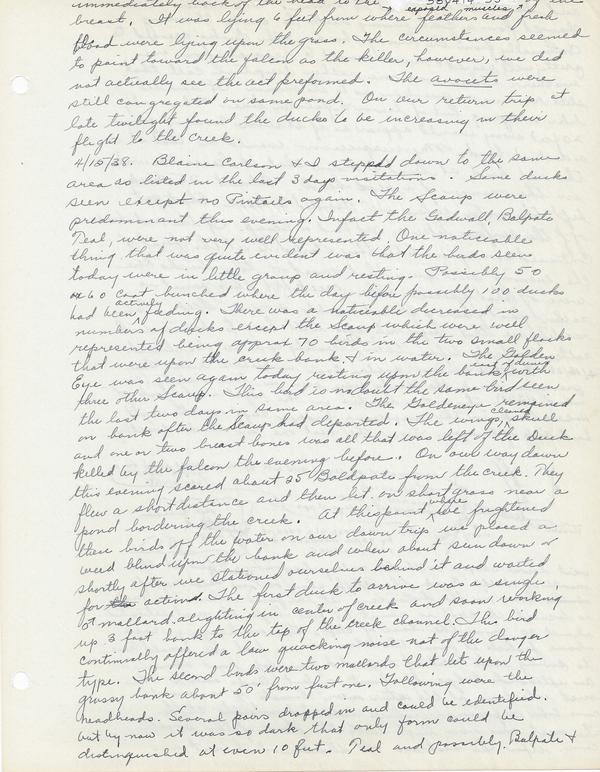 immediately back of the head to the exposed muscles of the
breast. It was lying 6 feet from where feathers and fresh
blood were lying upon the grass. The circumstances seemed
to point toward the falcon as the killer, however, we did
not actually see the act preformed. The avocets were
still congregated on same pond. On our return trip at
late twilight found the ducks to be increasing in their
flight to the creek.
4/15/38. Blaine Carlson & I stepped down to the same
area as listed in the last 3 days visitations. Same ducks
seen except no Pintails again. The Scaup were
predominant this evening. Infact the Gadwall, Balpate
Teal, were not very well represented. One noticeable
thing that was quite evident was that the birds seen
today were in little group and resting. Possibly 50
or 60 Coot bunched where the day before possibly 100 ducks
had been actively feeding. There was a noticable decreased in
numbers of ducks except the Scaup which were well
represented being approx 70 birds in the two small flocks
that were upon the creek bank & in water. The Golden
Eye was seen again today resting upon the bank with
three other Scaup. This bird is no doubt the same bird seen
the last two days in same area. The Goldeneye remained
on bank after the Scaup had departed. The wings, cleaned skull
and one or two breast bones was all that was left of the Duck
killed by the falcon the evening before. On our way down
this evening scared about 25 Baldpate from the creek. They
flew a short distance and then lit on short grass near a
pond bordering the creek. At this point where we frightened
these birds off the water on our down trip we placed a
weed blind upon the bank and when about sun down or
shortly after we stationed ourselves behind it and waited
for action. The first duck to arrive was a single
♂ mallard alighting in center of creek and soon working
up 3 foot bank to the top of the creek channel. This bird
continually offered a low quacking noise not of the danger
type. The second birds were two mallards that lit upon the
grassy bank about 50' from first one. Following were the
headheads. Several pairs dropped in and could be identified.
but by now it was so dark that only form could be
distinguished at even 10 feet. Teal and possibly Balpate &